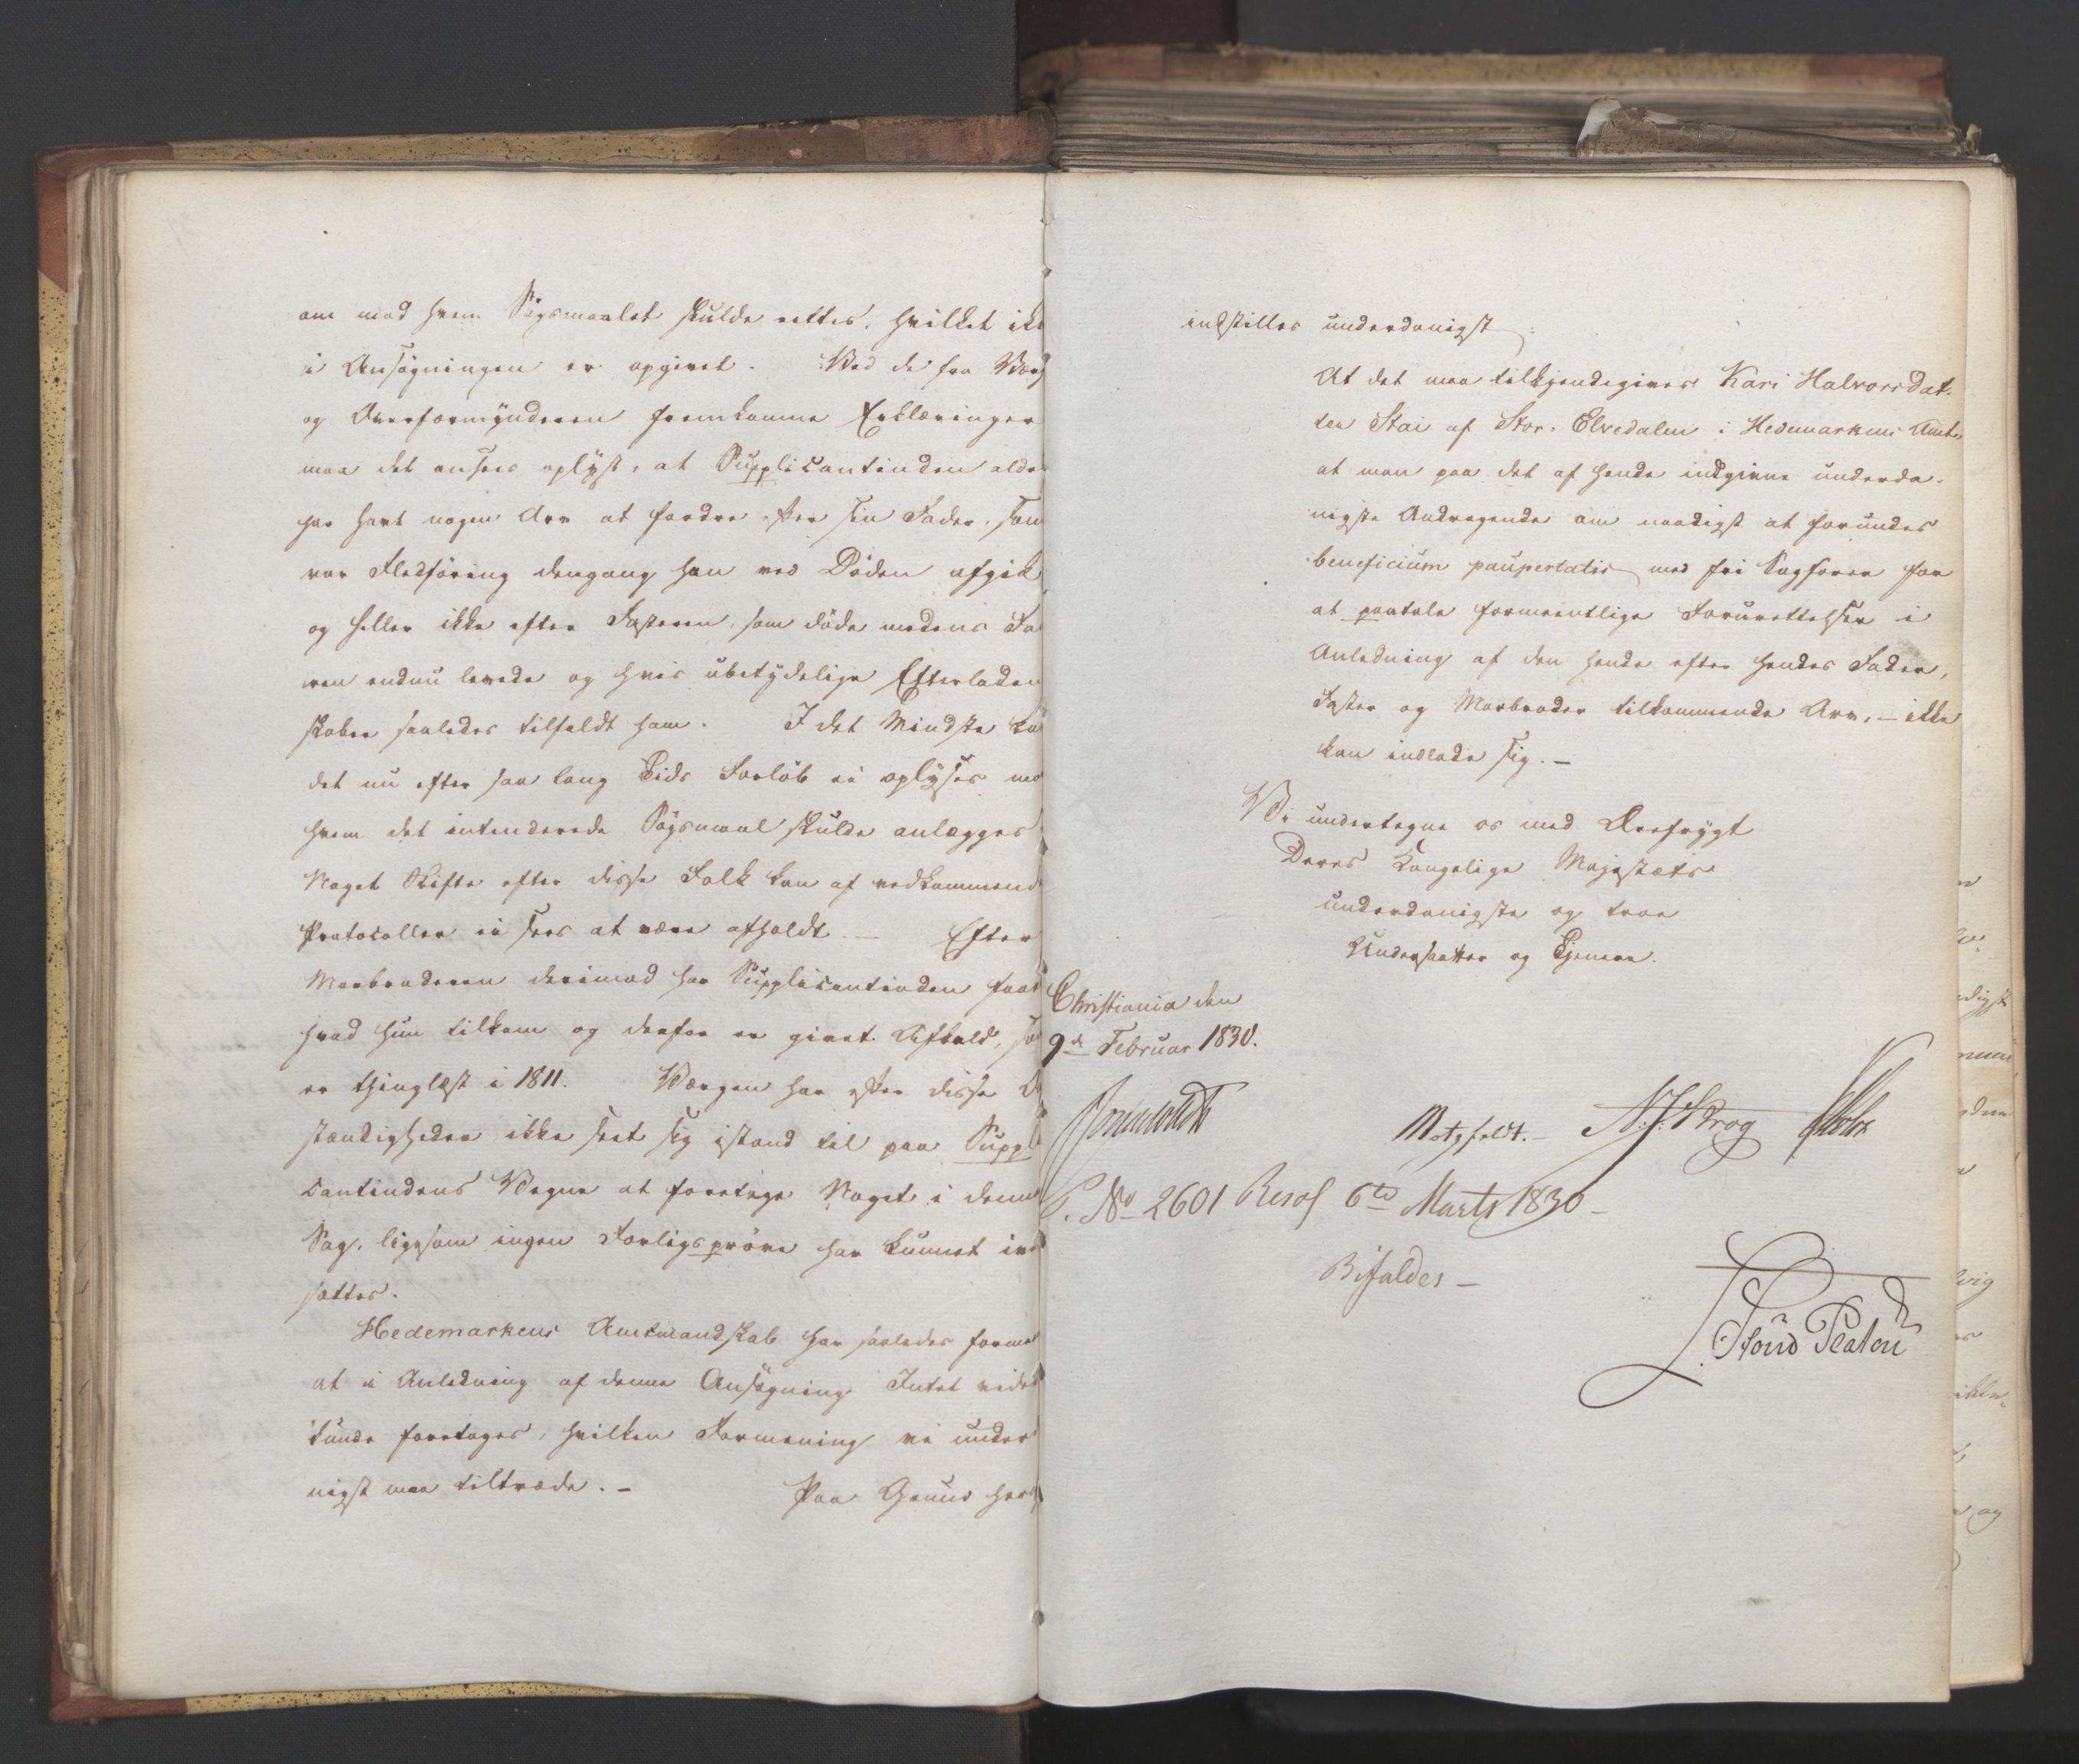 om mod hvem Søgsmaalet skulde rettes, hvilket ik
i Ansøgningen er opgivet. Ved de fra Værg
og Overformynderen fremkomne Erklæringer
maa det ansees oplyst, at Supplicantinden alde
har havt nogen Arv at fordre efter sin Fader, som
var Fledføring dengang han ved Døden afgik
og heller ikke efter Fasteren, som døde medens Fa
ren endnu levede og hvis ubetydelige Efterladen
skaber saaledes tilfaldt ham. I det Mindste ka
det nu efter saa lang Tids Forløb ei oplyses mo
hvem det intenderede Søgsmaal skulde anlægges
Noget Skifte efter disse Folk kan af vedkommend
Protocoller ei sees at være afholdt. — Efter
Morbroderen derimod har Supplicantinden faaet
hvad hun tilkom og derfor er givet Afkald, so
er thinglæst i 1811. Værgen har efter disse O
stændigheder ikke seet sig istand til paa Suppli
cantindens Vegne at foretage Noget i denne
Sag, ligesom ingen Forligsprøve har kunnet iv
sættes.
Hedemarkens Amtmandskab har saaledes formee
at i Anledning af denne Ansøgning Intet vider
kunde foretages, hvilken Formening vi under
nigst maa tiltræde. — Paa Grund her
indstilles underdanigst:
At det maa tilkjendegives Kari Halvorsdat-
ter Stai af Stor-Elvedalen i Hedemarkens Amt
at man paa det af hende indgivne underda-
nigste Andragende om naadigst at forundes
beneficium paupertatis med fri Sagfører for
at paatale formeentlige Forurettelser i
Anledning af den hende efter hendes Fader,
Faster og Morbroder tilkommende Arv, — ikke
kan indlade sig. —
Vi undertegne os med Ærefrygt
Deres Kongelige Majestæts
underdanigste og troe
Undersaatter og Tjenere.
Christiania den
9de Februar 1830.
Motzfeldt. — Krog Holst
P. No 2601 Resol 6te Marts 1830 —
Bifaldes —